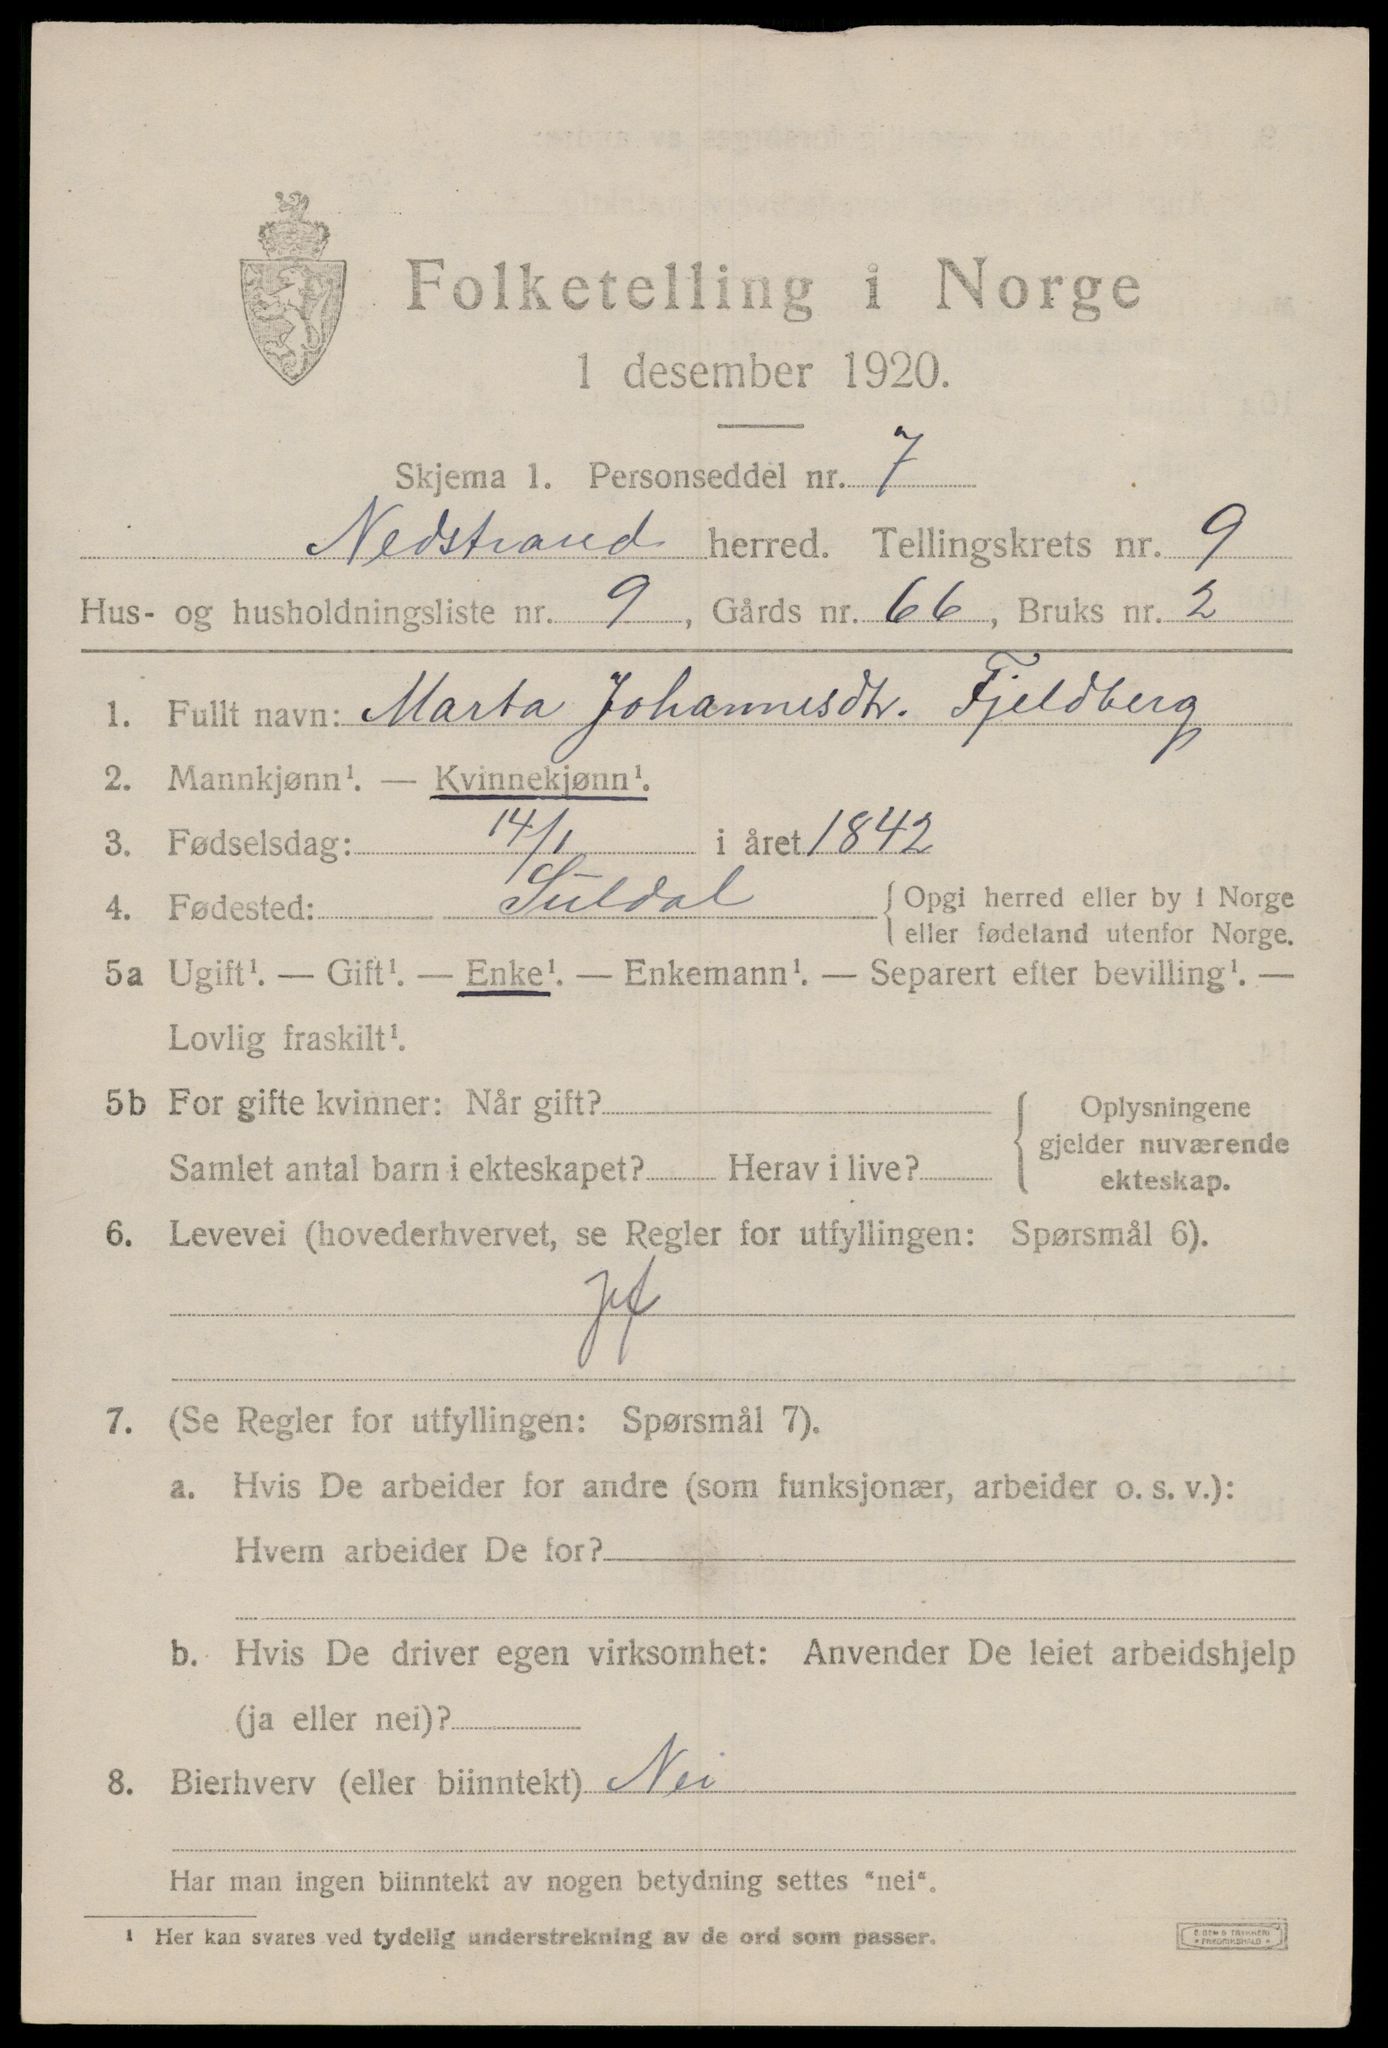 Folketelling i Norge
1 desember 1920.
Skjema 1. Personseddel nr. 7
Nedstrand herred. Tellingskrets nr. 9
Hus- og husholdningsliste nr. 9, Gårds nr. 66, Bruks nr. 2
1. Fullt navn: Marta Johannesdtr. Fjeldberg
2. Mannkjønn¹. — Kvinnekjønn¹.
3. Fødselsdag: 14/1 i året 1842
4. Fødested: Suldal { Opgi herred eller by i Norge
eller fødeland utenfor Norge.
5a Ugift¹. — Gift¹. — Enke¹. — Enkemann¹. — Separert efter bevilling¹. —
Lovlig fraskilt¹.
5b For gifte kvinner: Når gift? { Oplysningene
gjelder nuværende
Samlet antal barn i ekteskapet? Herav i live? ekteskap.
6. Levevei (hovederhvervet, se Regler for utfyllingen: Spørsmål 6).
7. (Se Regler for utfyllingen: Spørsmål 7).
a. Hvis De arbeider for andre (som funksjonær, arbeider o. s. v.):
Hvem arbeider De for?
b. Hvis De driver egen virksomhet: Anvender De leiet arbeidshjelp
(ja eller nei)?
8. Bierhverv (eller biinntekt) Nei
Har man ingen biinntekt av nogen betydning settes "nei".
¹ Her kan svares ved tydelig understrekning av de ord som passer.